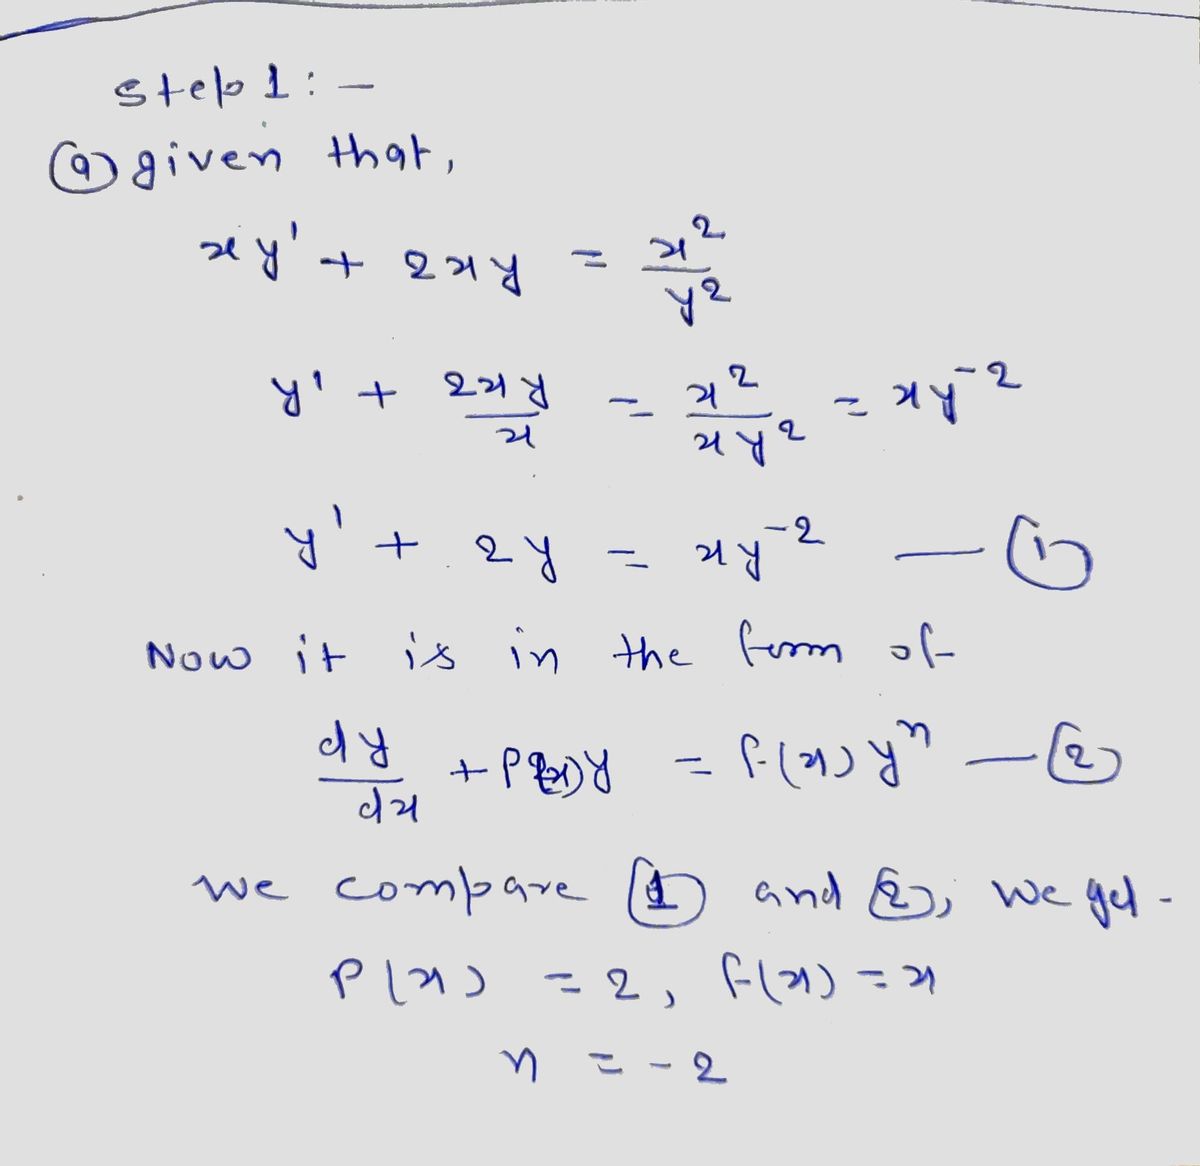 step 1 : -
(a) given that,
xy' + 2xy = x²/y²
y' + 2xy/x = x²/xy² = xy⁻²
y' + 2y = xy⁻² — (1)
Now it is in the form of
dy/dx + P(x)y = f(x)yⁿ — (2)
we compare (1) and (2), we get -
P(x) = 2, f(x) = x
n = -2